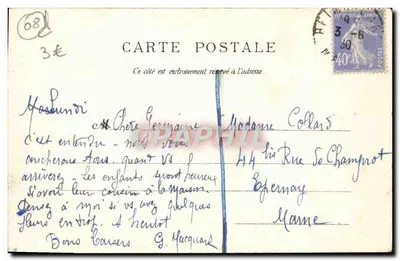 08
3€
CARTE POSTALE
Ce côté est exclusivement réservé à l'adresse.
3-6
30
40
Lundi
Chère Germaine
c'est entendu - nous vous
attendrons tous quant vs
arriverez - Les enfants seront heureux
d'avoir leur cousin à la maison.
Pensez à moi si vs avez quelques
fleurs en trop. A bientôt
Bons baisers G. Macquard
CPAPHIL
Madame Collard
44 bis Rue de Champrot
Epernay
Marne